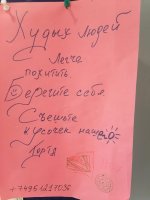 Худых людей
легче
похитить.
Берегите себя
Съешьте
кусочек нашего
торта
+74951217036